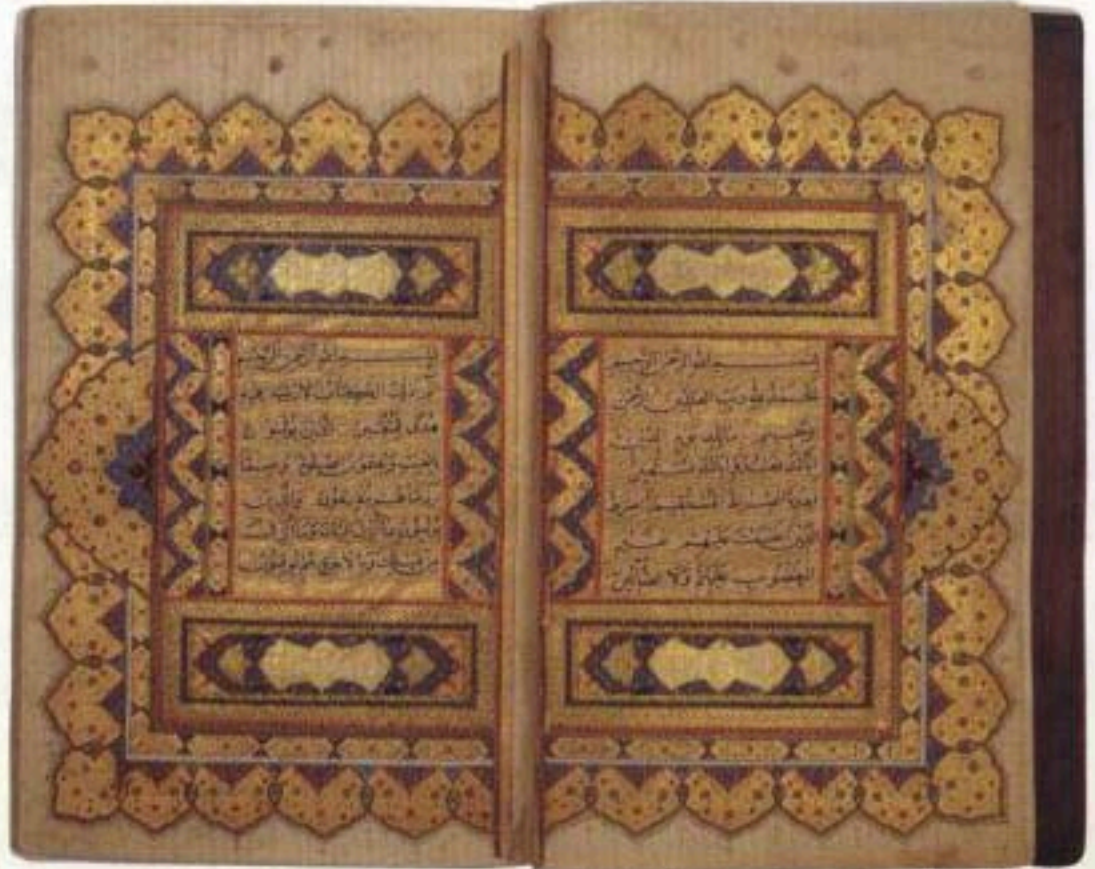 بسم الله الرحمن الرحيم
الحمد لله رب العلمين الرحمن
الرحيم مالك يوم الدين
اياك نعبد واياك نستعين
اهدنا الصراط المستقيم صراط
الذين انعمت عليهم غير
المغضوب عليهم ولا الضالين
بسم الله الرحمن الرحيم
الم ذلك الكتاب لا ريب فيه
هدى للمتقين الذين يؤمنون
بالغيب ويقيمون الصلوة
ومما رزقناهم ينفقون والذين
يؤمنون بما انزل اليك وما انزل
من قبلك وبالاخرة هم يوقنون